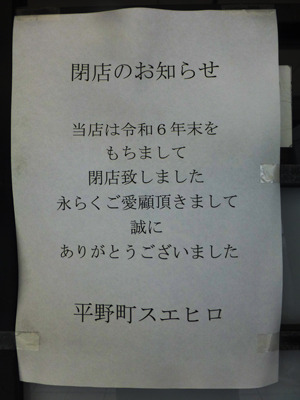 閉店のお知らせ
当店は令和６年末を
もちまして
閉店致しました
永らくご愛顧頂きまして
誠に
ありがとうございました
平野町スエヒロ